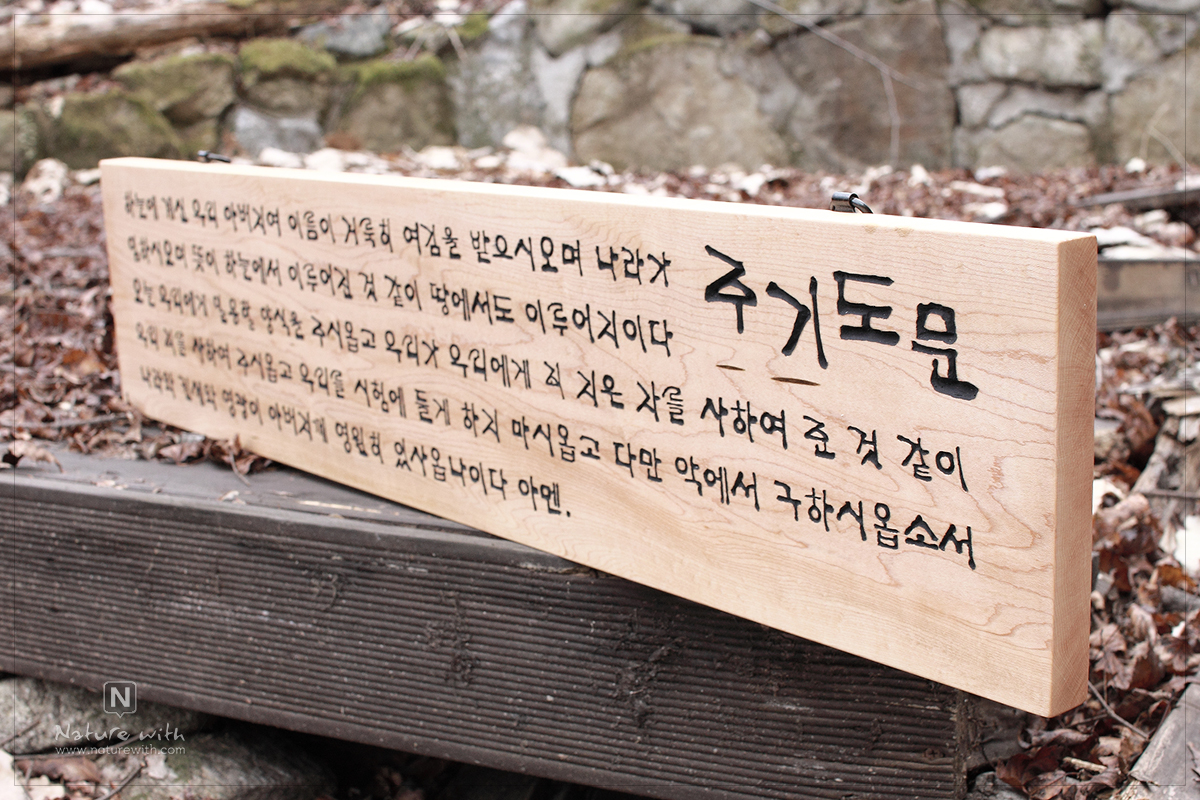 주기도문
하늘에 계신 우리 아버지여 이름이 거룩히 여김을 받으시오며 나라가
임하시오며 뜻이 하늘에서 이루어진 것 같이 땅에서도 이루어지이다
오늘 우리에게 일용할 양식을 주시옵고 우리가 우리에게 죄 지은 자를 사하여 준 것 같이
우리 죄를 사하여 주시옵고 우리를 시험에 들게 하지 마시옵고 다만 악에서 구하시옵소서
나라와 권세와 영광이 아버지께 영원히 있사옵나이다 아멘.
N
Nature with
www.naturewith.com